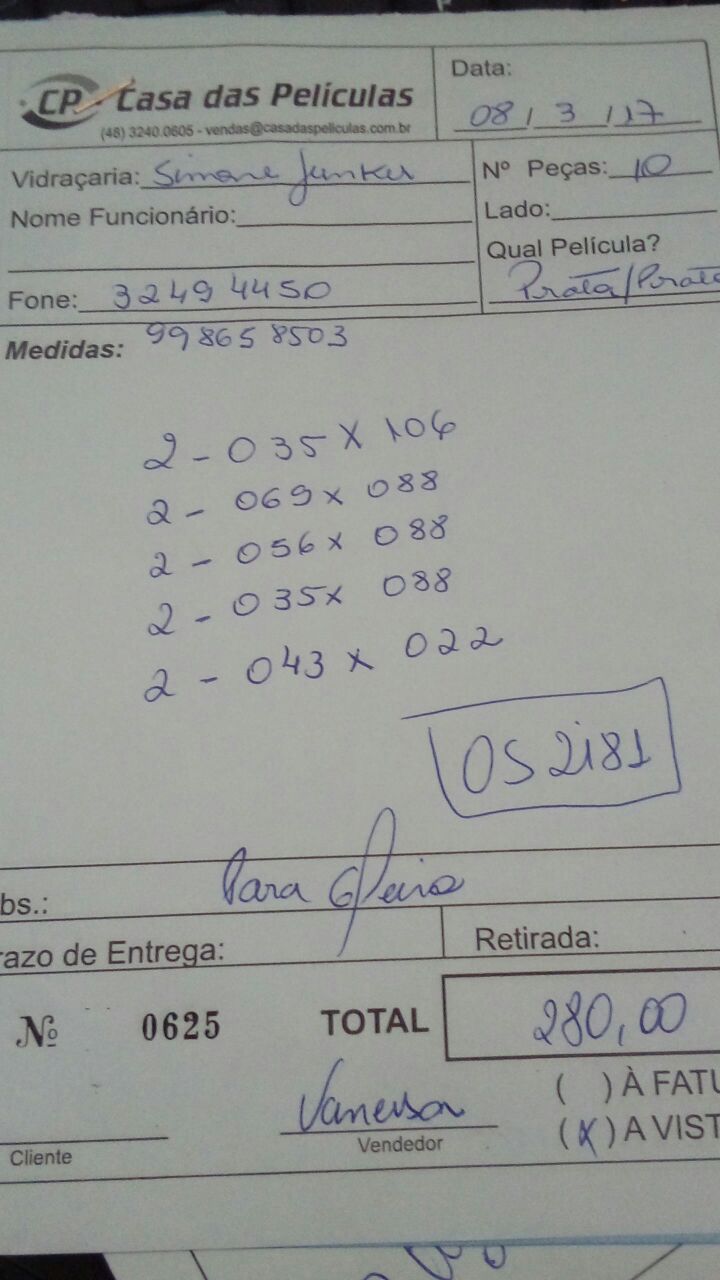 CP Casa das Películas
(48) 3240.0605 - vendas@casadaspeliculas.com.br
Data:
08 / 3 / 17
Vidraçaria: Simone Junkes
Nº Peças: 10
Nome Funcionário:
Lado:
Qual Película?
Fone: 3249 4450
Prata/Prata
Medidas: 998658503
2 - 035 x 106
2 - 069 x 088
2 - 056 x 088
2 - 035 x 088
2 - 043 x 022
OS 2181
bs.: Para
razo de Entrega:
Retirada:
Nº 0625
TOTAL 280,00
( ) À FATU
Vanessa
(X) A VIST
Cliente
Vendedor